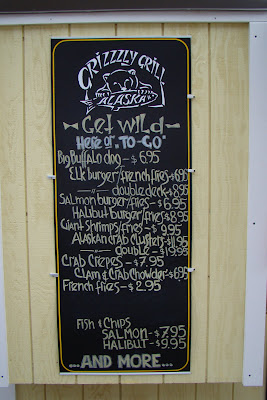 GRIZZZLY GRILL
ALASKA
Get Wild
Here or "TO-GO"
Big Buffalo dog - $6.95
Elk burger/french fries - $6.95
—"— double deck - $8.95
Salmon burger/fries - $6.95
Halibut burger/fries $8.95
Giant Shrimps/fries - $9.95
Alaskan crab clusters - $11.95
—"— double - $19.95
Crab Crepes - $7.95
Clam & Crab Chowder - $6.95
French fries - $2.95
Fish & Chips
SALMON - $7.95
HALIBUT - $9.95
...AND MORE...